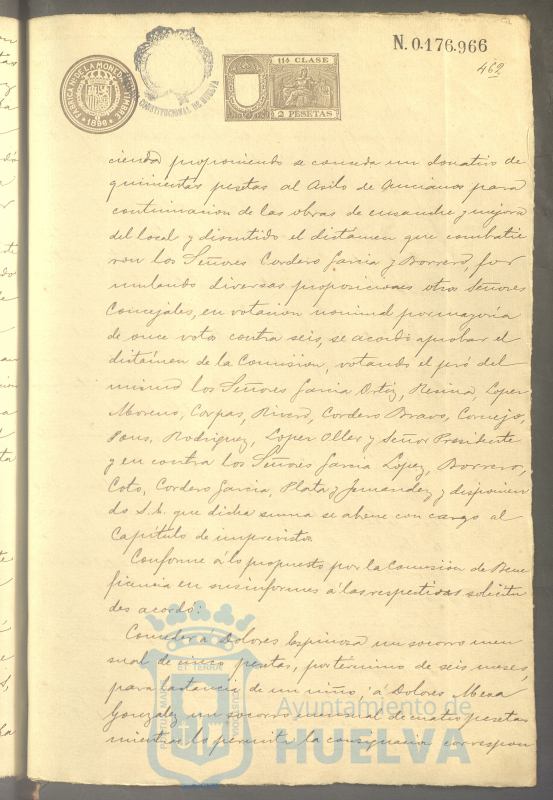 N. 0.176.966
462
FABRICA NL DE LA MONEDA Y TIMBRE
1896
CONSTITUCIONAL DE HUELVA
11ª CLASE
2 PESETAS
cienda proponiendo se conceda un donativo de
quinientas pesetas al Asilo de Ancianos para
continuacion de las obras de ensanche y mejora
del local y discutido el dictámen que combatie
ron los Señores Cordero Garcia y Borrero, for
mulando diversas proposiciones otros Señores
Concejales, en votacion nominal por mayoría
de once votos contra seis, se acordó aprobar el
dictámen de la Comision, votando el pró del
mismo los Señores Garcia Ortiz, Resina, Lopez
Moreno, Corpas, Rivero, Cordero Bravo, Cornejo,
Pons, Rodriguez, Lopez Oller y Señor Presidente
y en contra los Señores Garcia Lopez, Borrero,
Coto, Cordero Garcia, Plata y Fernandez y disponien
do S.E. que dicha suma se abone con cargo al
Capítulo de imprevistos.
Conforme á lo propuesto por la Comision de Bene
ficencia en sus informes á las respectivas solicitu
des acordó:
Conceder a Dolores Espinoza un socorro men
sual de cinco pesetas, por término de seis meses,
para lactancia de un niño, á Dolores Mesa
Gonzalez un socorro mensual de cuatro pesetas
mientras lo permita la consignacion correspon
PORTUS MARIS ET TERRÆ CUSTODIA
Ayuntamiento de
HUELVA